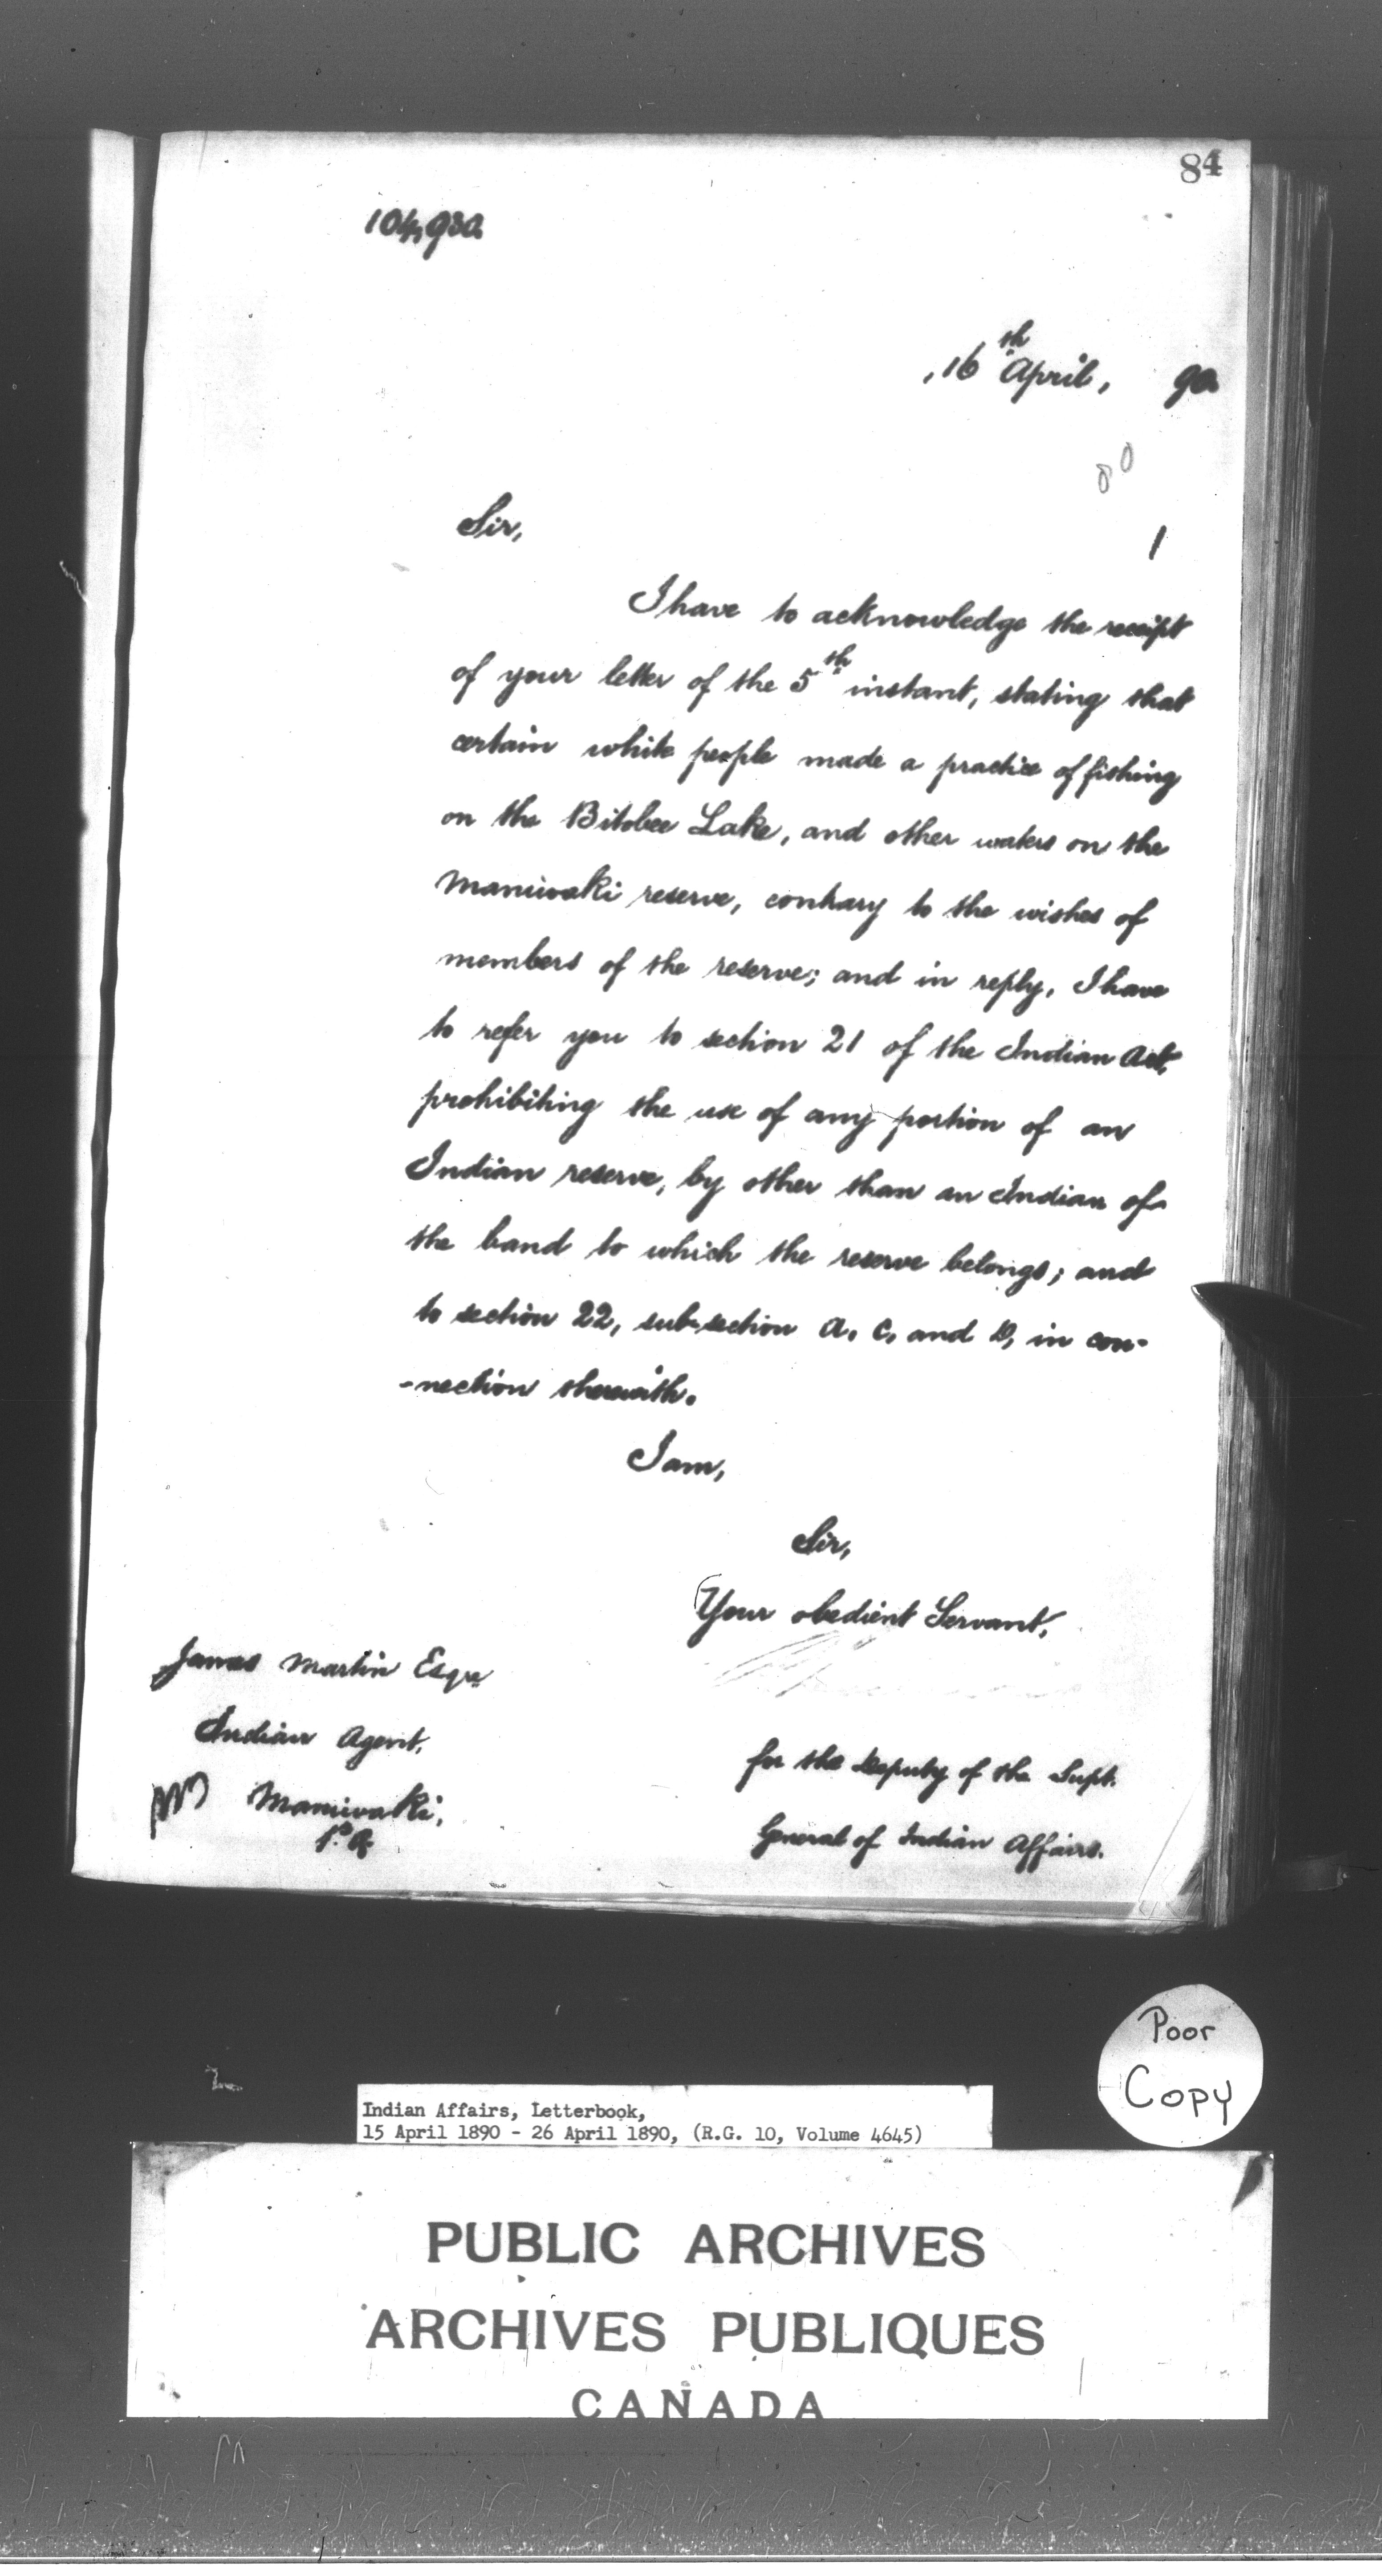 84
104,930
16th April, 90
80
1
Sir,
I have to acknowledge the receipt
of your letter of the 5th instant, stating that
certain white people made a practice of fishing
on the Bitobee Lake, and other waters on the
Maniwaki reserve, contrary to the wishes of
members of the reserve; and in reply, I have
to refer you to section 21 of the Indian Act,
prohibiting the use of any portion of an
Indian reserve, by other than an Indian of
the band to which the reserve belongs; and
to section 22, sub-section A, C, and D, in con-
-nection therewith.
I am,
Sir,
Your obedient Servant,
James Martin Esqre
Indian Agent,
Maniwaki,
P.Q.
for the Deputy of the Supt.
General of Indian Affairs.
Poor
Copy
Indian Affairs, Letterbook,
15 April 1890 - 26 April 1890, (R.G. 10, Volume 4645)
PUBLIC ARCHIVES
ARCHIVES PUBLIQUES
CANADA